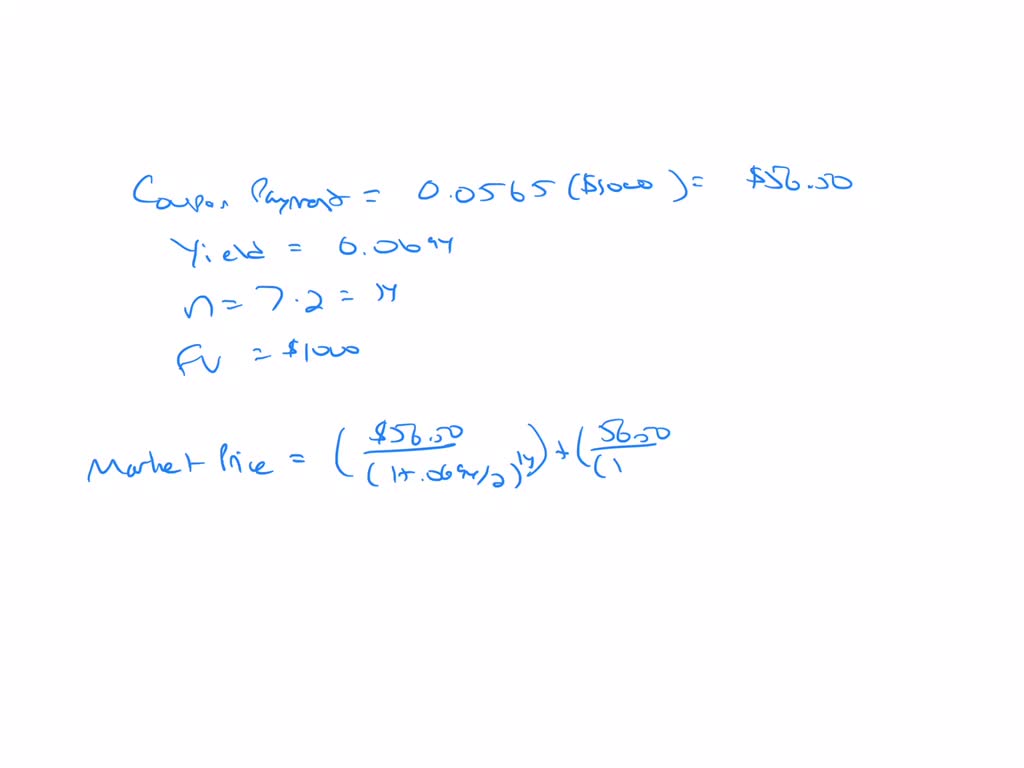 Coupon Payment = 0.0565 ($1000) = $56.50
Yield = 0.0694
n = 7.2 = 14
FV = $1000
Market Price = ($56.50 / (1+.0694/2)^14) + (56.50 / (1